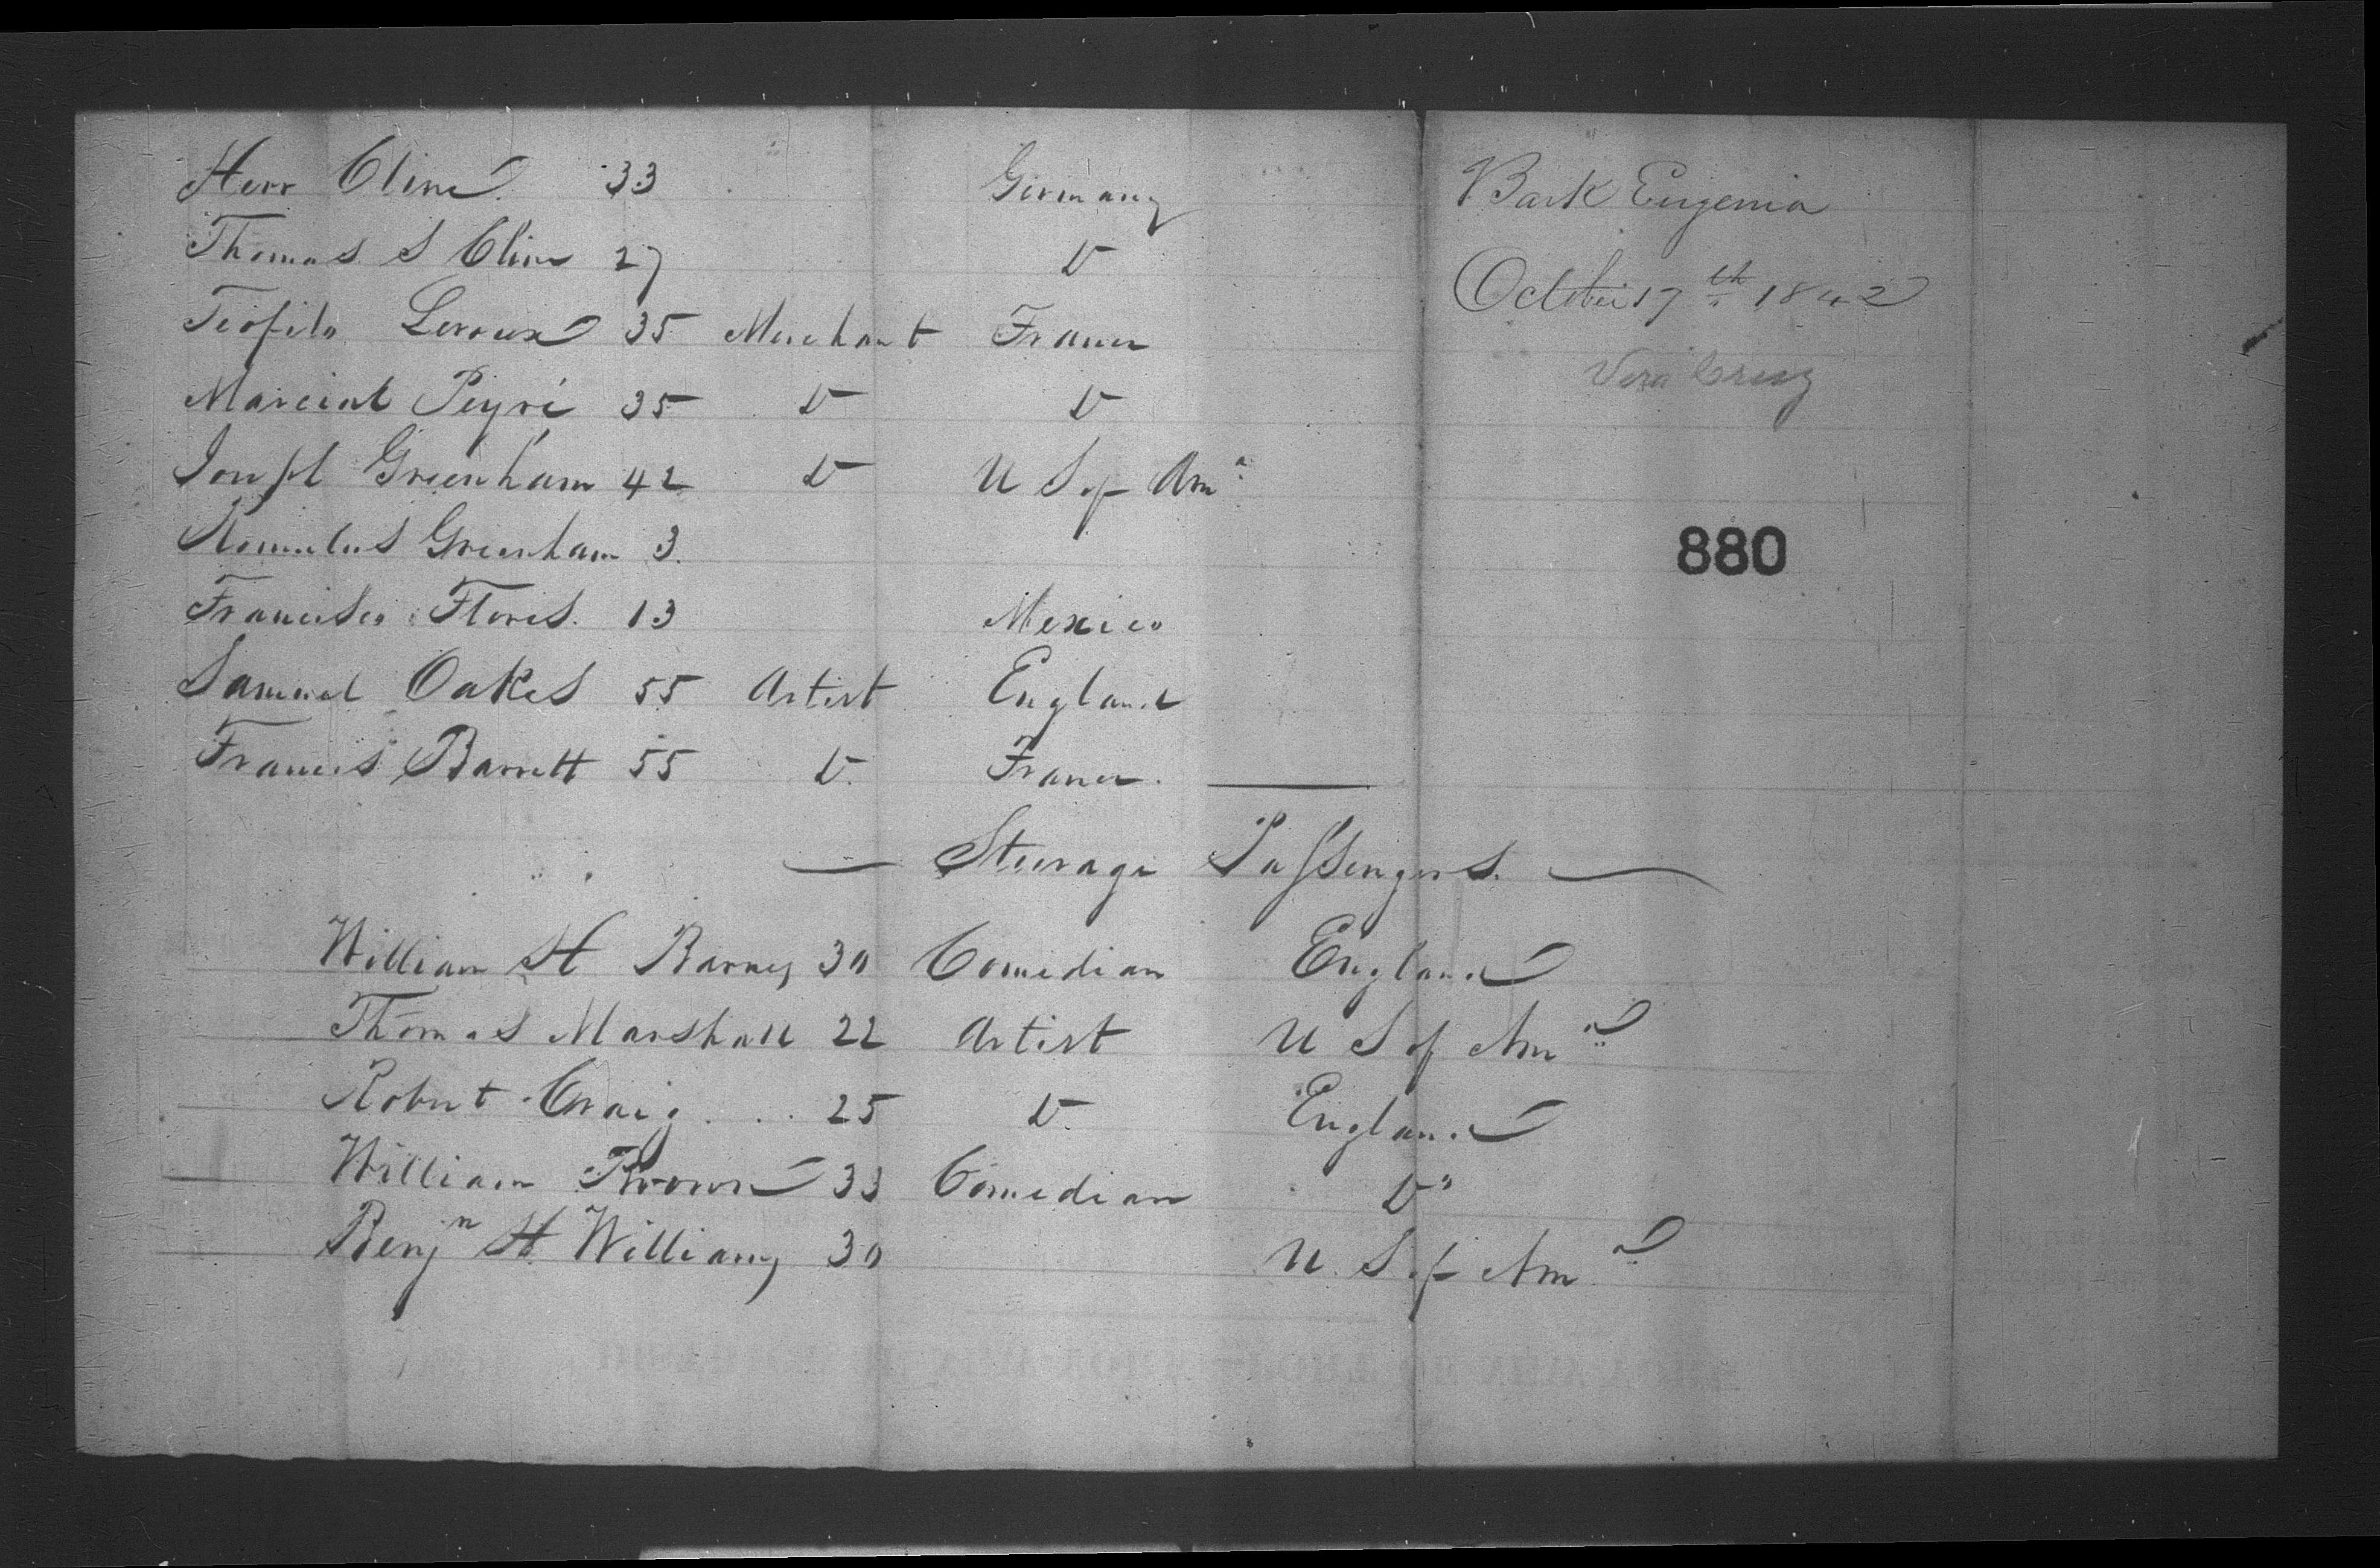 Herr Cline 33 Germany
Thomas S Cline 27 Do
Teofilo Leroux 35 Merchant France
Marcial Peyré 35 Do Do
Joseph Greenham 42 Do U S of Ama
Romulus Greenham 3.
Francisco Flores. 13 Mexico
Samuel Oakes 55 Artist England
Francis Barrett 55 Do. France.
Steerage Passengers.
William H Barney 30 Comedian England
Thomas Marshall 22 Artist U S of Ama
Robert Craig 25 Do. England
William Brown 33 Comedian Do
Benjn H Williams 30 U. S of Ama
Bark Eugenia
October 17th 1842
Vera Cruz
880